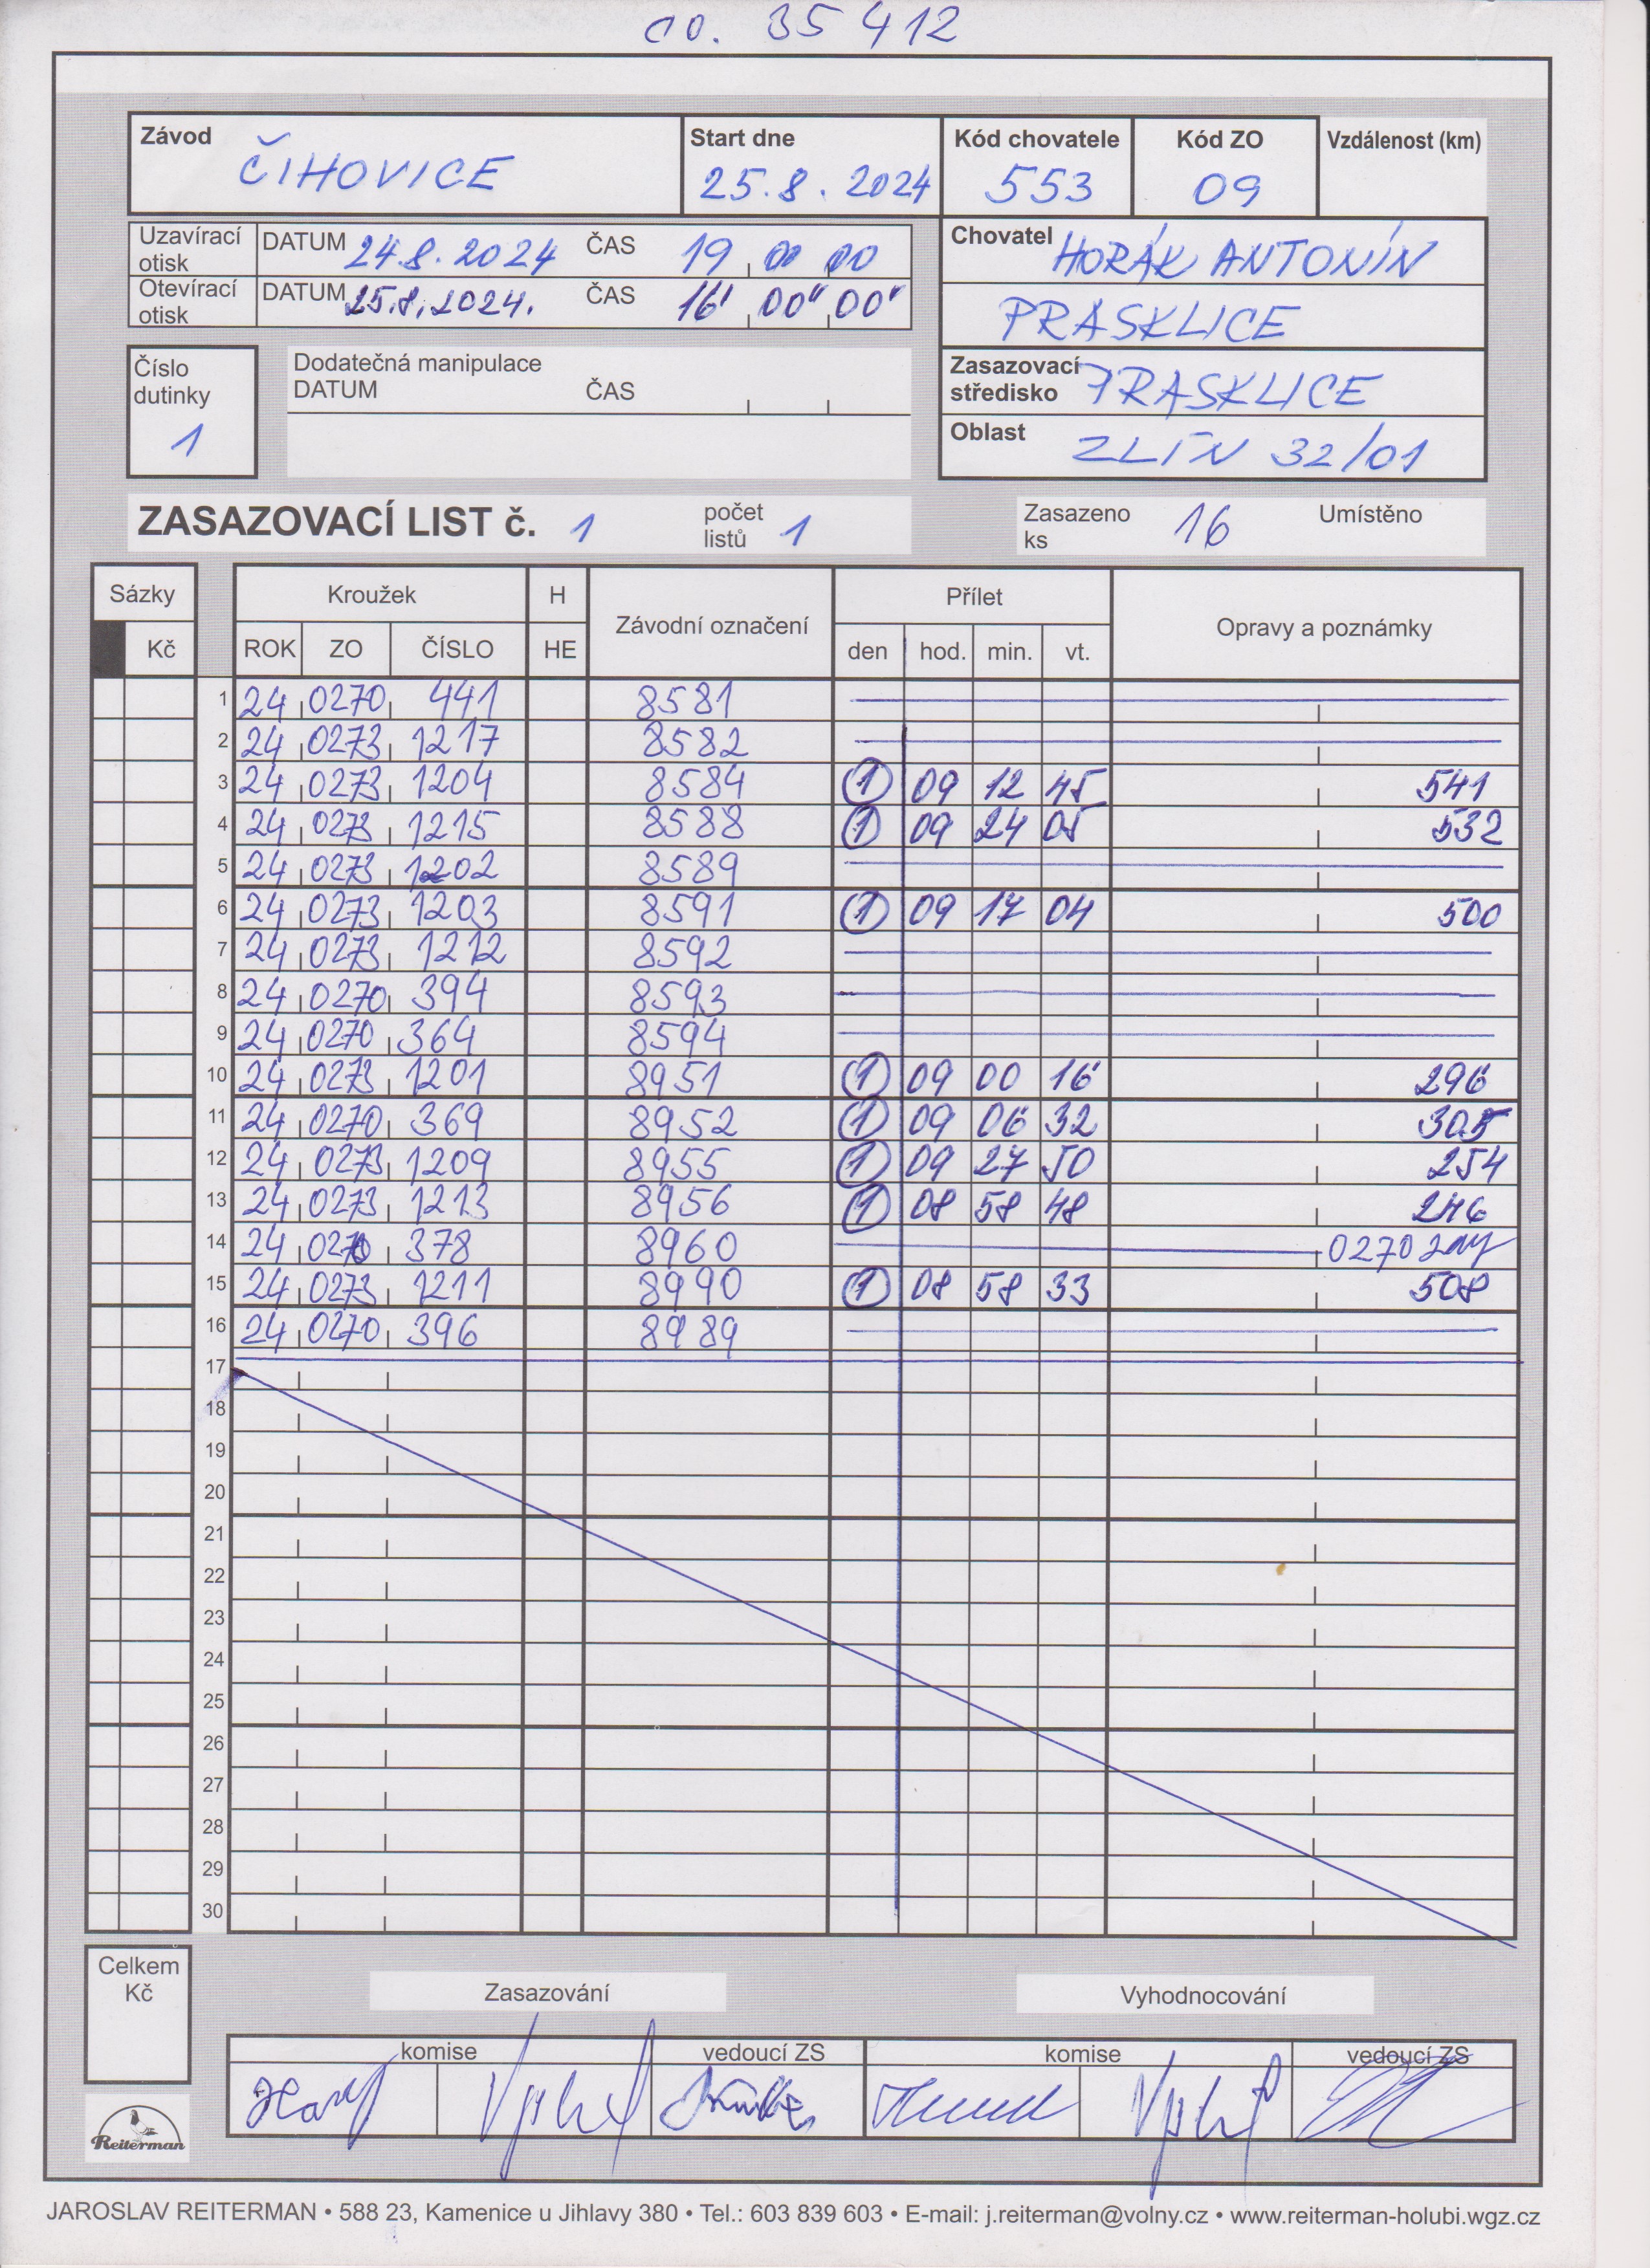 co. 35 412
Závod Start dne Kód chovatele Kód ZO Vzdálenost (km)
ČIHOVICE 25.8.2024 553 09
Uzavírací otisk DATUM 24.8.2024 ČAS 19 00 00
Otevírací otisk DATUM 25.8.2024. ČAS 16' 00" 00"
Chovatel HORÁK ANTONÍN
PRASKLICE
Číslo dutinky 1
Dodatečná manipulace
DATUM ČAS
Zasazovací středisko PRASKLICE
Oblast ZLÍN 32/01
ZASAZOVACÍ LIST č. 1 počet listů 1 Zasazeno ks 16 Umístěno
Sázky Kroužek H Závodní označení Přílet Opravy a poznámky
Kč ROK ZO ČÍSLO HE den hod. min. vt.
1 24 0270 441 8581
2 24 0273 1217 8582
3 24 0273 1204 8584 1 09 12 45 541
4 24 0273 1215 8588 1 09 24 05 532
5 24 0273 1202 8589
6 24 0273 1203 8591 1 09 17 04 500
7 24 0273 1212 8592
8 24 0270 394 8593
9 24 0270 364 8594
10 24 0273 1201 8951 1 09 00 16 296
11 24 0270 369 8952 1 09 06 32 305
12 24 0273 1209 8955 1 09 27 50 254
13 24 0273 1213 8956 1 08 58 48 246
14 24 0270 378 8960 0270
15 24 0273 1211 8990 1 08 58 33 508
16 24 0270 396 8989
17
18
19
20
21
22
23
24
25
26
27
28
29
30
Celkem Kč
Zasazování Vyhodnocování
komise vedoucí ZS komise vedoucí ZS
Reiterman
JAROSLAV REITERMAN • 588 23, Kamenice u Jihlavy 380 • Tel.: 603 839 603 • E-mail: j.reiterman@volny.cz • www.reiterman-holubi.wgz.cz